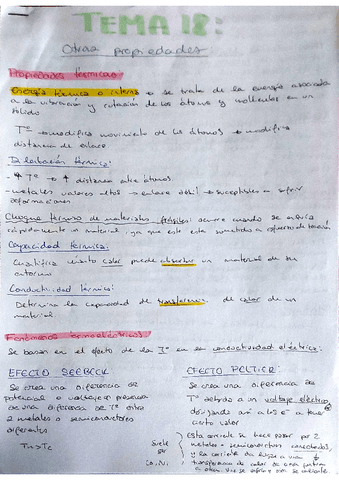 TEMA 18:
Otras propiedades:
Propiedades térmicas
Energía térmica o calor → se trata de la energía asociada
a la vibración y rotación de los átomos y moléculas en un
sólido
Tª → modifica movimiento de los átomos → modifica
distancia de enlace
Dilatación térmica:
- ↑ Tª → ↑ distancia entre átomos.
- metales valores altos → enlace débil → susceptibles a sufrir
deformaciones
Choque térmico de materiales frágiles: ocurre cuando se enfría
rápidamente un material, ya que este está sometido a esfuerzo de tensión
Capacidad térmica:
Cuantifica cuánto calor puede absorber un material de su
entorno
Conductividad térmica:
Determina la capacidad de transferencia de calor de un
material
Fenómenos termoeléctricos
Se basan en el efecto de la Tª en la conductividad eléctrica:
EFECTO SEEBECK
Se crea una diferencia de
potencial o voltaje en presencia
de una diferencia de Tª entre
2 metales o semiconductores
diferentes
EFECTO PELTIER:
Se crea una diferencia de
Tª debido a un voltaje eléctrico,
a los e⁻ a tener
cierto valor
Esta corriente se hace pasar por 2
metales o semiconductores conectados,
y la corriente da lugar a una
transferencia de calor de una